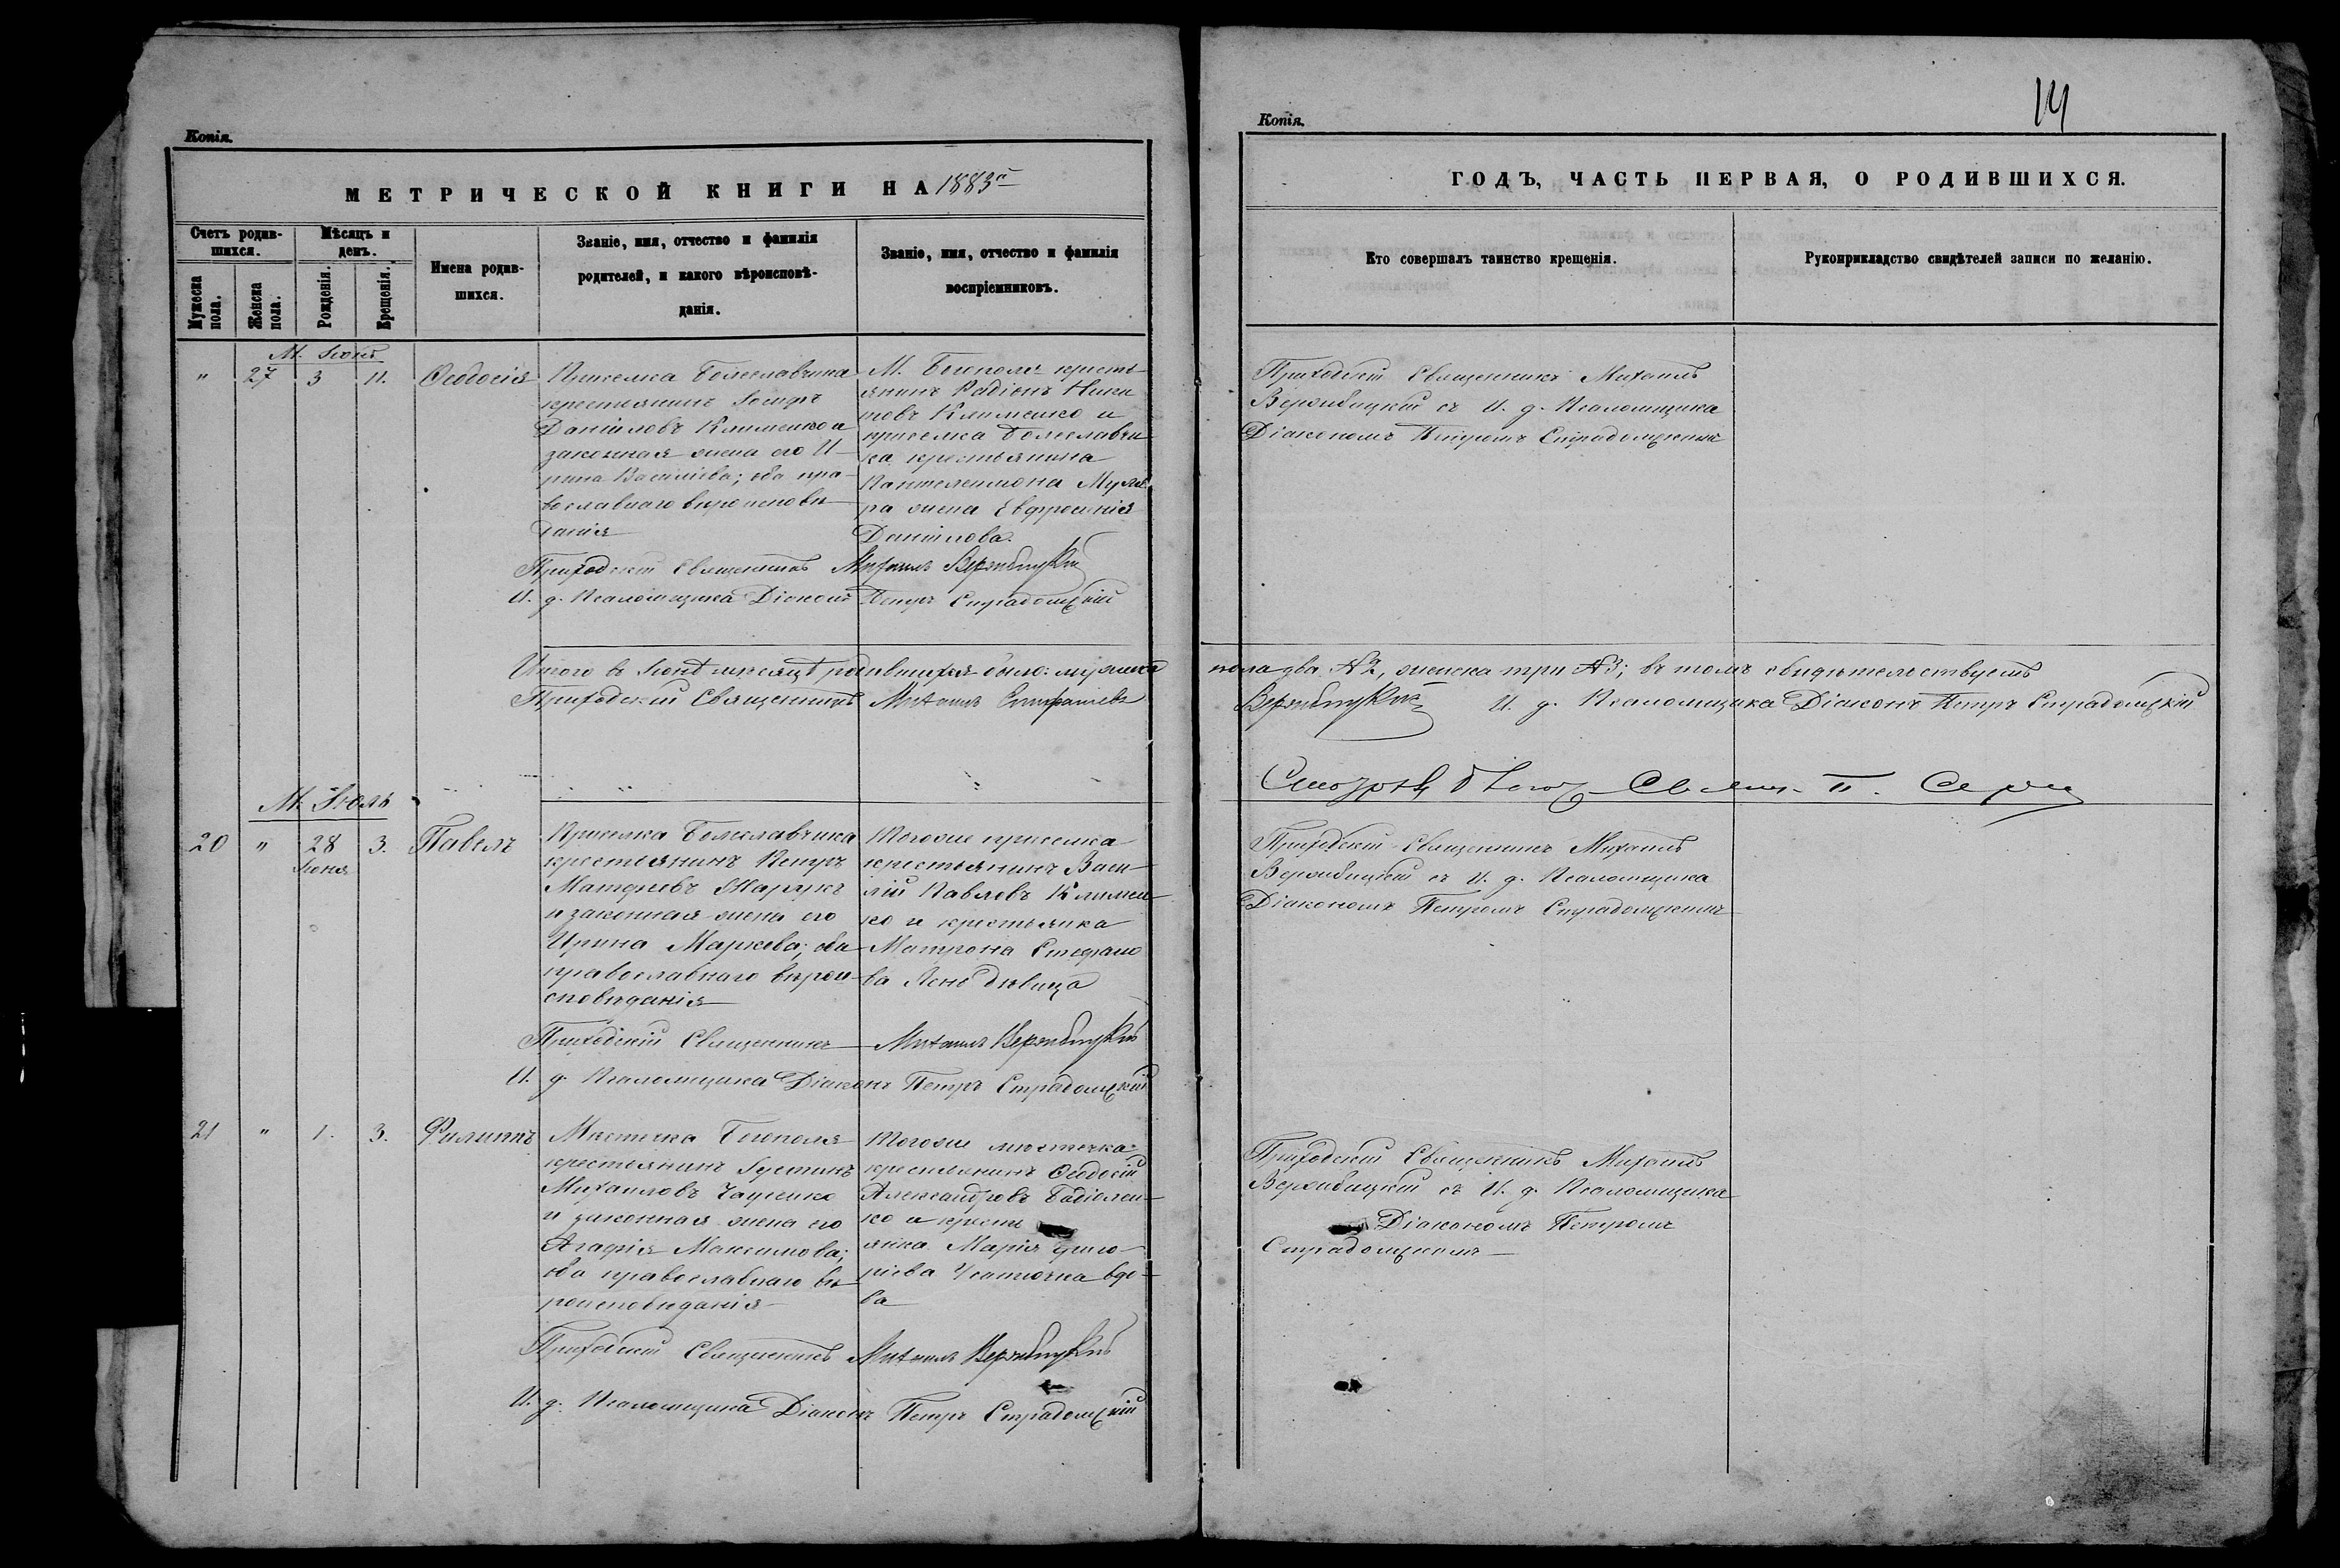 Копія.
МЕТРИЧЕСКОЙ КНИГИ НА 1883й
Счетъ родив-
шихся.
Мѣсяцъ и
день.
Мужеска
пола.
Женска
пола.
Рожденія.
Крещенія.
Имена родив-
шихся.
Званіе, имя, отчество и фамилія
родителей, и какого вѣроисповѣ-
данія.
Званіе, имя, отчество и фамилія
воспріемниковъ.
М. Іюнь
" 27 3 11. Ѳеодосія
Приселка Болеславчика
крестьянинъ Іосифъ
Даніиловъ Клименко и
законная жена его И-
рина Василіева; оба пра-
вославнаго вѣроисповѣ-
данія
М. Богополя кресть-
янинъ Радіонъ
Клименко и
приселка Болеславчи-
ка крестьянина
Пантелеимона
жена Евфросинія
Даніилова.
Приходскій Священникъ Михаилъ Вержбицкій
И. д. Псаломщика Діаконъ Петръ Страдомскій
Итого въ Іюнѣ мѣсяцѣ родившихся было: мужеска
Приходскій Священникъ Михаилъ
М. Іюль
20 " 28 3. Павелъ
Іюня
Приселка Болеславчика
крестьянинъ Петръ
Матфеевъ
и законная жена его
Ирина Маркова; оба
православнаго вѣрои-
сповѣданія
Тогоже приселка
крестьянинъ Васи-
лій Павловъ Климен-
ко и крестьянка
Матрона Стефано-
ва дѣвица
Приходскій Священникъ Михаилъ Вержбицкій
И. д. Псаломщика Діаконъ Петръ Страдомскій
21 " 1. 3. Филиппъ
Мѣстечка Богополя
крестьянинъ Іустинъ
Михаиловъ
и законная жена его
Агафія Максимова;
оба православнаго вѣ-
роисповѣданія
Тогоже мѣстечка
крестьянинъ Ѳеодосій
Александровъ
и кресть-
янка Марія Григо-
ріева вдо-
ва
Приходскій Священникъ Михаилъ Вержбицкій
И. д. Псаломщика Діаконъ Петръ Страдомскій
14
Копія.
ГОДЪ, ЧАСТЬ ПЕРВАЯ, О РОДИВШИХСЯ.
Кто совершалъ таинство крещенія.
Рукоприкладство свидѣтелей записи по желанію.
Приходскій Священникъ Михаилъ
Вержбицкій съ И. д. Псаломщика
Діакономъ Петромъ Страдомскимъ
пола два №2, женска три №3; въ томъ свидѣтельствуетъ
Вержбицкій И. д. Псаломщика Діаконъ Петръ Страдомскій
Приходскій Священникъ Михаилъ
Вержбицкій съ И. д. Псаломщика
Діакономъ Петромъ Страдомскимъ
Приходскій Священникъ Михаилъ
Вержбицкій съ И. д. Псаломщика
Діакономъ Петромъ
Страдомскимъ